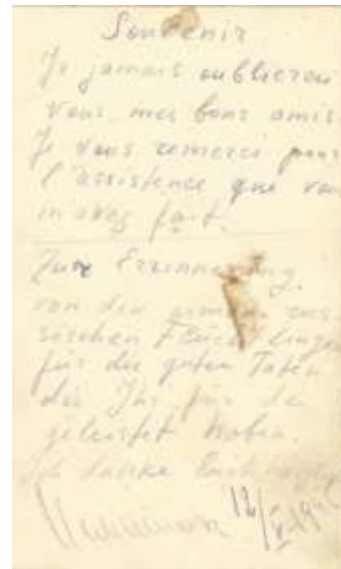 Souvenir
Je jamais oublierai
Vous, mes bons amis.
Je vous remerci pour
l'assistence que vous
m'avez fait.
Zur Erinnerung
von den armen rus-
sischen Flüchtlingen
für die guten Taten
die Ihr für
geleistet haben.
Ich danke Euch
12/V 194